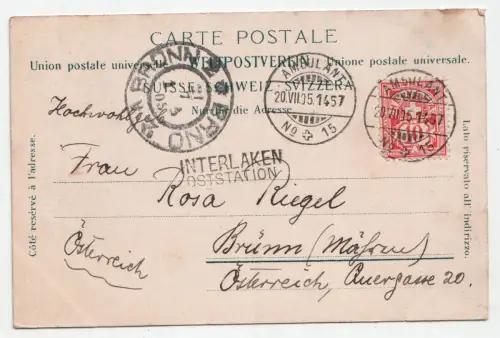 CARTE POSTALE
Union postale universelle. WELTPOSTVEREIN. Unione postale universale.
SUISSE. SCHWEIZ. SVIZZERA.
Nur für die Adresse.
BRÜNN BRNO
AMBULANT
20.VII.05.1457
No 15
AMBULANT
20.VII.05.1457
No 15
10
Hochwohlgeb.
INTERLAKEN
OSTSTATION
Frau
Rosa Riegel
Brünn (Mähren)
Österreich, Auergasse 20.
Österreich
Côté réservé à l'adresse.
Lato riservato all' indirizzo.